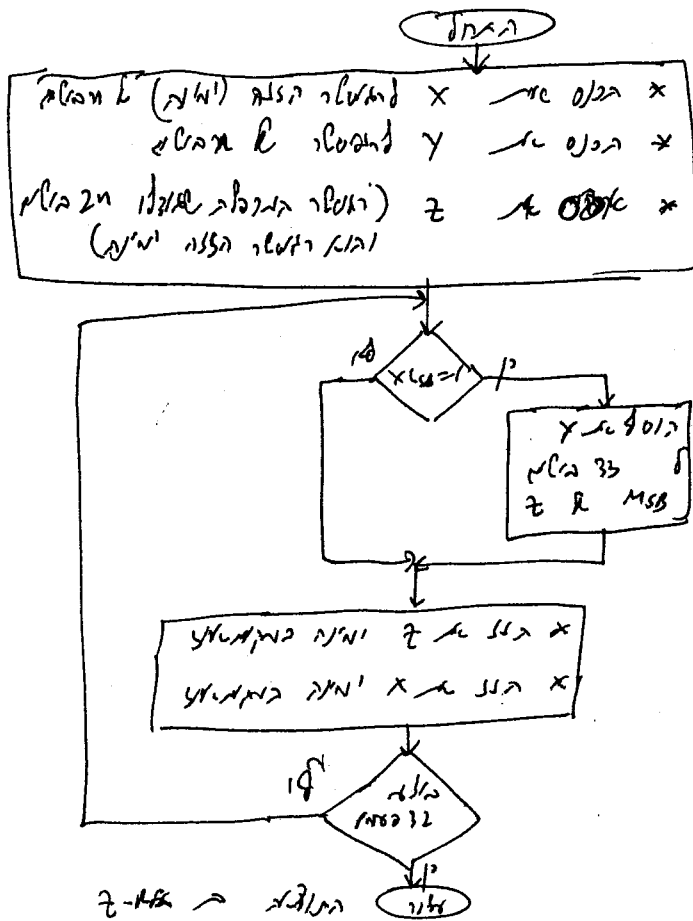 התחל
* הכנס את X לרגיסטר הזזה (ימינה) של n ביטים
* הכנס את Y לרגיסטר של n ביטים
* אפס את Z (רגיסטר המכפלה שגודלו 2n ביטים
והוא רגיסטר הזזה ימינה)
X LSB = 1
לא
כן
הוסף את Y
ל 33 ביטים
MSB של Z
* הזז את Z ימינה במקום אחד
* הזז את X ימינה במקום אחד
לא
בוצע
32 פעמים
כן
עצור
התוצאה ב Z